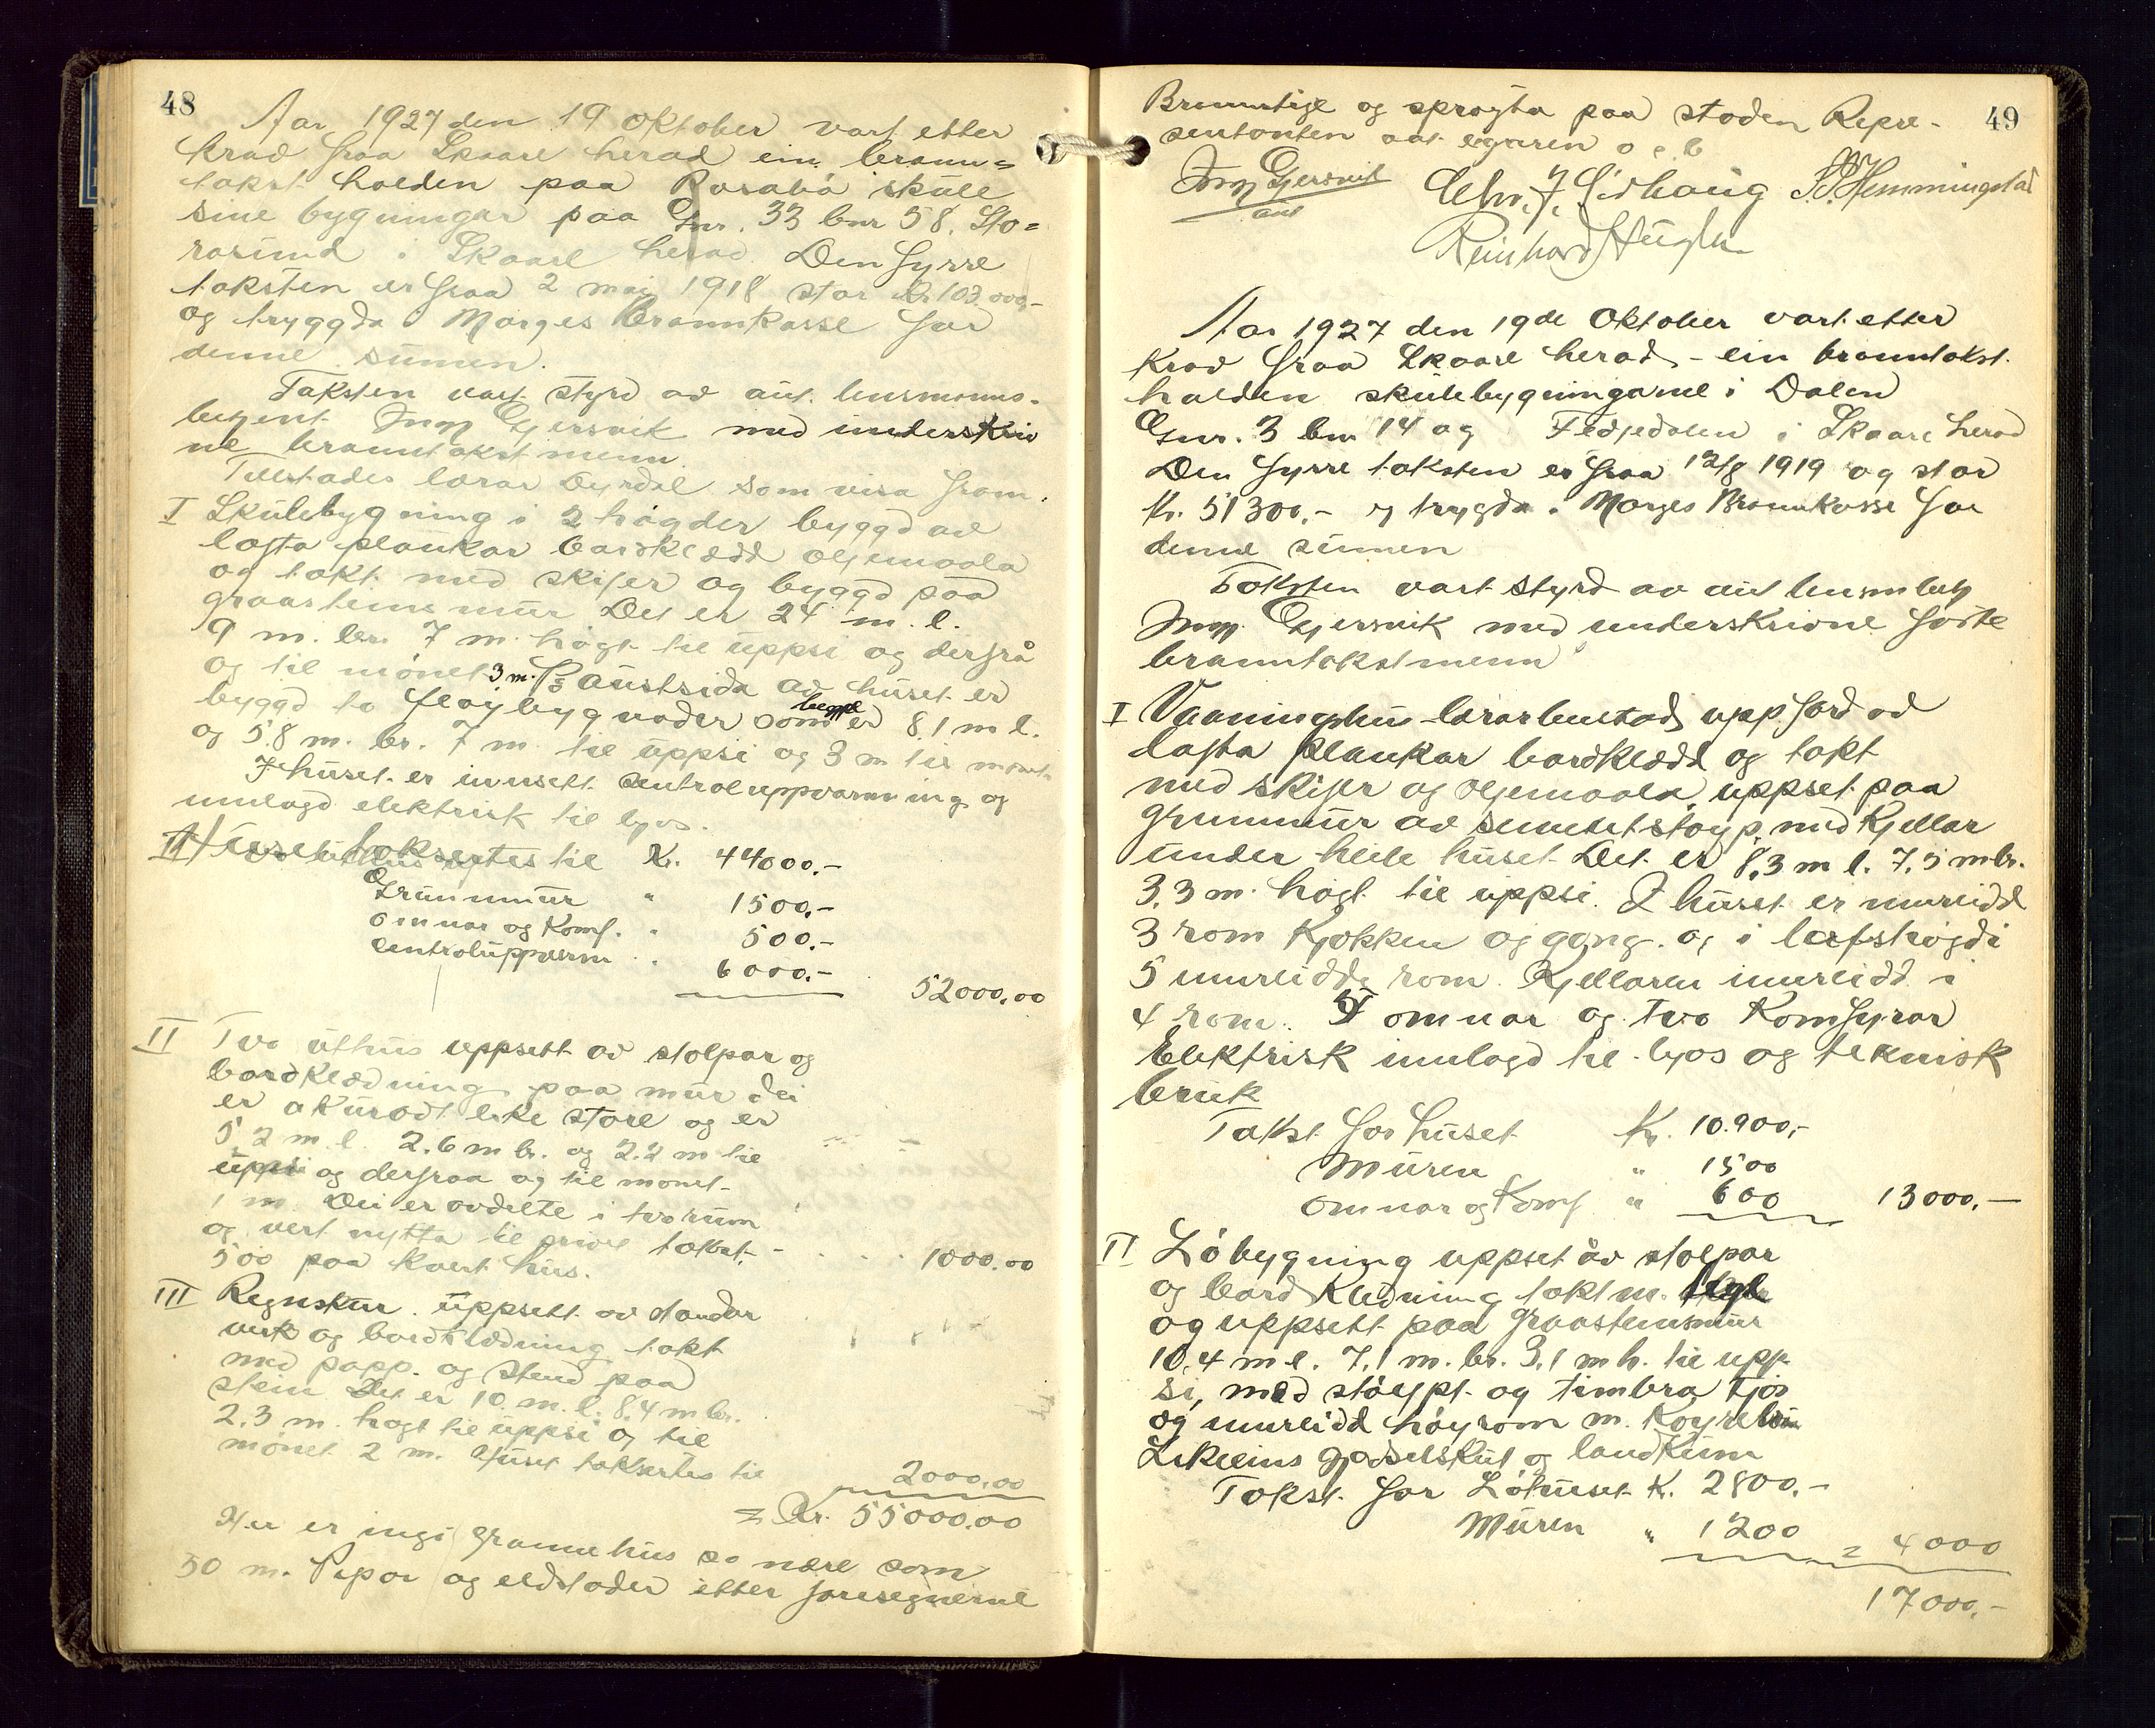 48
Aar 1927 den 19 Oktober vart etter
krav fraa Skaare herad ein brann=
takst halden paa Rosabø skule
sine bygningar paa Gnr. 33 bnr 58. Sto=
rasund i Skaare herad. Den fyrre
taksten er fraa 2 mai 1918 stor kr 103.000,-
og tryggda i Norges Brannkasse for
denne sumen.
Taksten vart styrd av aut. lensmanns-
betjent Ingv Gjersvik med underskriv
ne branntakstmenn
Tilstades lærar Dyrdal som visa fram.
I Skulebygning i 2 høgder byggd av
lafta plankar bordklædd oljemaala
og takt med skifer og byggd paa
graasteins mur Det er 24 m. l.
9 m. br. 7 m. høgt til uppsi og derfrå
og til mønet 3 m. På austsida av huset er
byggd to fløybygnader som begge er 8,1 m l.
og 5.8 m. br. 7 m. til uppsi og 3 m til mønet
I huset er innsett sentraluppvarming og
innlagd elektrisk til lyos.
Huset taksertes til Kr. 44000.-
Grunnmur " 1500,-
omnar og Komf. " 500.-
Centraluppvarm " 6000.-
52000,00
II Tvo uthus uppsett av stolpar og
bordklædning paa mur dei
er akurat like store og er
5,2 m l. 2.6 m br. og 2.2 m til
uppsi og derfraa og til mønet
1 m. Dei er avdelte i tvo rum
og vert nytta til takst.
500 paa kvert hus. 1000.00
III Regnskur. uppsett av standar
verk og bordklædning takt
med papp. og stend paa
stein Det er 10 m. l. 8,4 m br.
2.3 m. høgt til uppsi og til
mønet 2 m. Huset taksertes til
2000,00
= Kr. 55000.00
Her er ingi grannehus so nære som
30 m. Pipor og eldstader etter foresegnerne
49
Brannstige og sprøyta paa staden Repre-
sentanten aat eigaren o. s b
Ingv Gjersvik
aut
Chr. J. Sirhaug S. Hemmingstad
Reinhard
Aar 1927 den 19de Oktober vart etter
Krav fraa Skaare herad - ein branntakst
halden skulebygningane i Dalen
Gnr. 3 bnr 14 og Fedjedalen i Skaare herad
Den fyrre taksten er fraa 12/8 1919 og stor
kr. 51300.- og trygda i Norges Brannkasse for
denne sumen
Taksten vart styrd av aut lensm betj
Ingv. Gjersvik med underskrivne førte
branntakstmenn
I Vaaningshus - lærarbustad uppførd av
lafta plankar bordklædd og takt
med skifer og oljemaala, uppset paa
grunnmur av sementstøyp. med Kjellar
under heile huset. Det er 8,3 m l. 7,5 m br.
3,3 m. høgt til uppsi. I huset er innreidd
3 rom Kjøkken og gang. og i loftshøgdi
5 innreidde rom. Kjellaren innreidd i
4 rom. omnar og tvo Komfyrar
Elektrisk innlagd til lyos og teknisk
bruk
Takst for huset Kr. 10.900,-
Muren " 1500
omnar og Komf " 600 13000.-
II Løbygning uppset av stolpar
og bord Klædning takt m.
og uppsett paa graasteinsmur
10,4 m l. 7,1 m. br. 3,1 m h. til upp
si, med støypt og timbra fjos
og innreidd høyrom m. Køyrebru
Likeeins gjødselskut og landkum
Takst for Løhuset K. 2800.-
Muren " 1200 = 4000
17000,-